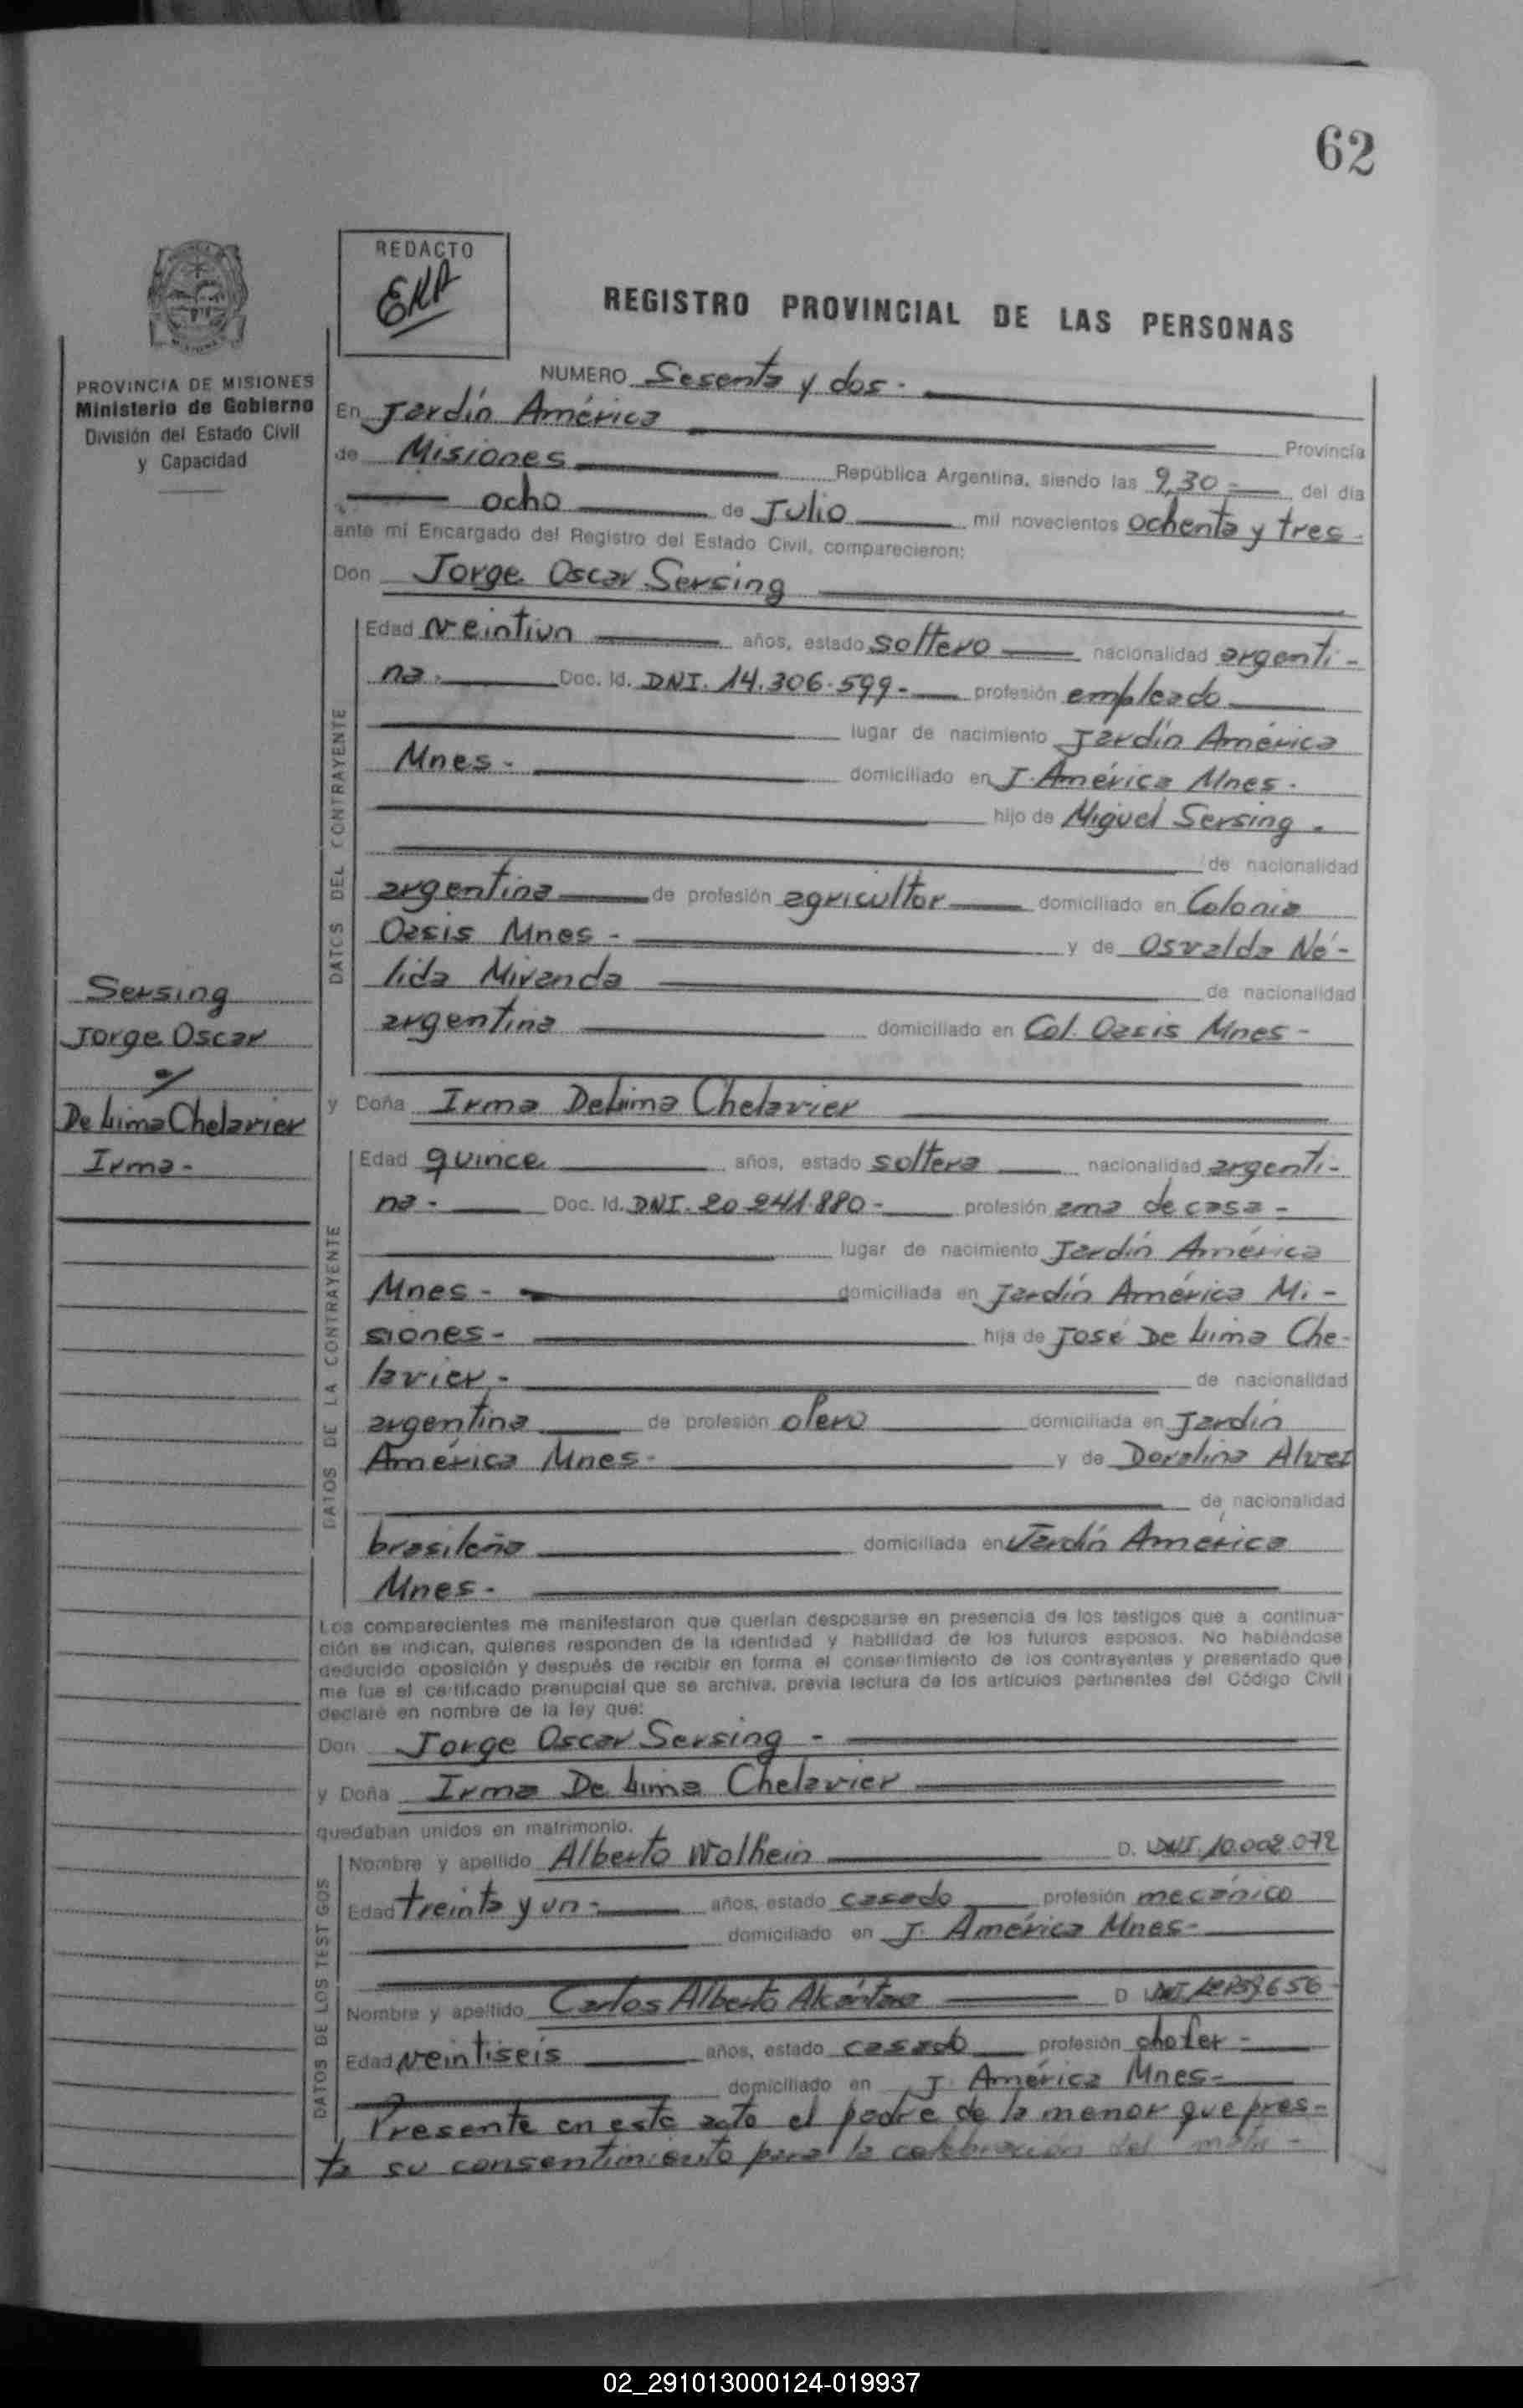 62
REDACTO
REGISTRO PROVINCIAL DE LAS PERSONAS
PROVINCIA DE MISIONES
Ministerio de Gobierno
División del Estado Civil
y Capacidad
NUMERO Sesenta y dos.
En Jardín América Provincia
de Misiones República Argentina, siendo las 9,30 del día
ocho de Julio mil novecientos ochenta y tres
ante mí Encargado del Registro del Estado Civil, comparecieron:
Don Jorge Oscar Sersing
DATOS DEL CONTRAYENTE
Edad veintiun años, estado soltero nacionalidad argenti-
na. Doc. Id. DNI. 14.306.599- profesión empleado
lugar de nacimiento Jardín América
Mnes- domiciliado en J. América Mnes.
hijo de Miguel Sersing.
de nacionalidad
argentina de profesión agricultor domiciliado en Colonia
Oasis Mnes- y de Osvalda Né-
lida Miranda de nacionalidad
argentina domiciliado en Col. Oasis Mnes-
Sersing
Jorge Oscar
De Lima Chelavier
Irma-
y Doña Irma De Lima Chelavier
DATOS DE LA CONTRAYENTE
Edad quince años, estado soltera nacionalidad argenti-
na- Doc. Id. DNI. 20 241.880- profesión ama de casa-
lugar de nacimiento Jardín América
Mnes- domiciliada en Jardín América Mi-
siones- hija de José De Lima Che-
lavier- de nacionalidad
argentina de profesión olero domiciliada en Jardín
América Mnes- y de Doralina Alvez
de nacionalidad
brasileña domiciliada en Jardín América
Mnes-
Los comparecientes me manifestaron que querían desposarse en presencia de los testigos que a continua-
ción se indican, quienes responden de la identidad y habilidad de los futuros esposos. No habiéndose
deducido oposición y después de recibir en forma el consentimiento de los contrayentes y presentado que
me fue el certificado prenupcial que se archiva, previa lectura de los artículos pertinentes del Código Civil
declaré en nombre de la ley que:
Don Jorge Oscar Sersing-
y Doña Irma De Lima Chelavier
quedaban unidos en matrimonio.
DATOS DE LOS TESTIGOS
Nombre y apellido Alberto Wolhein D. DNI. 10.002.072
Edad treinta y un- años, estado casado profesión mecánico
domiciliado en J. América Mnes-
Nombre y apellido Carlos Alberto Alcántara D
Edad veintiseis años, estado casado profesión chofer-
domiciliado en J. América Mnes-
Presente en este acto el padre de la menor que pres-
ta su consentimiento para la celebración del
02_291013000124-019937